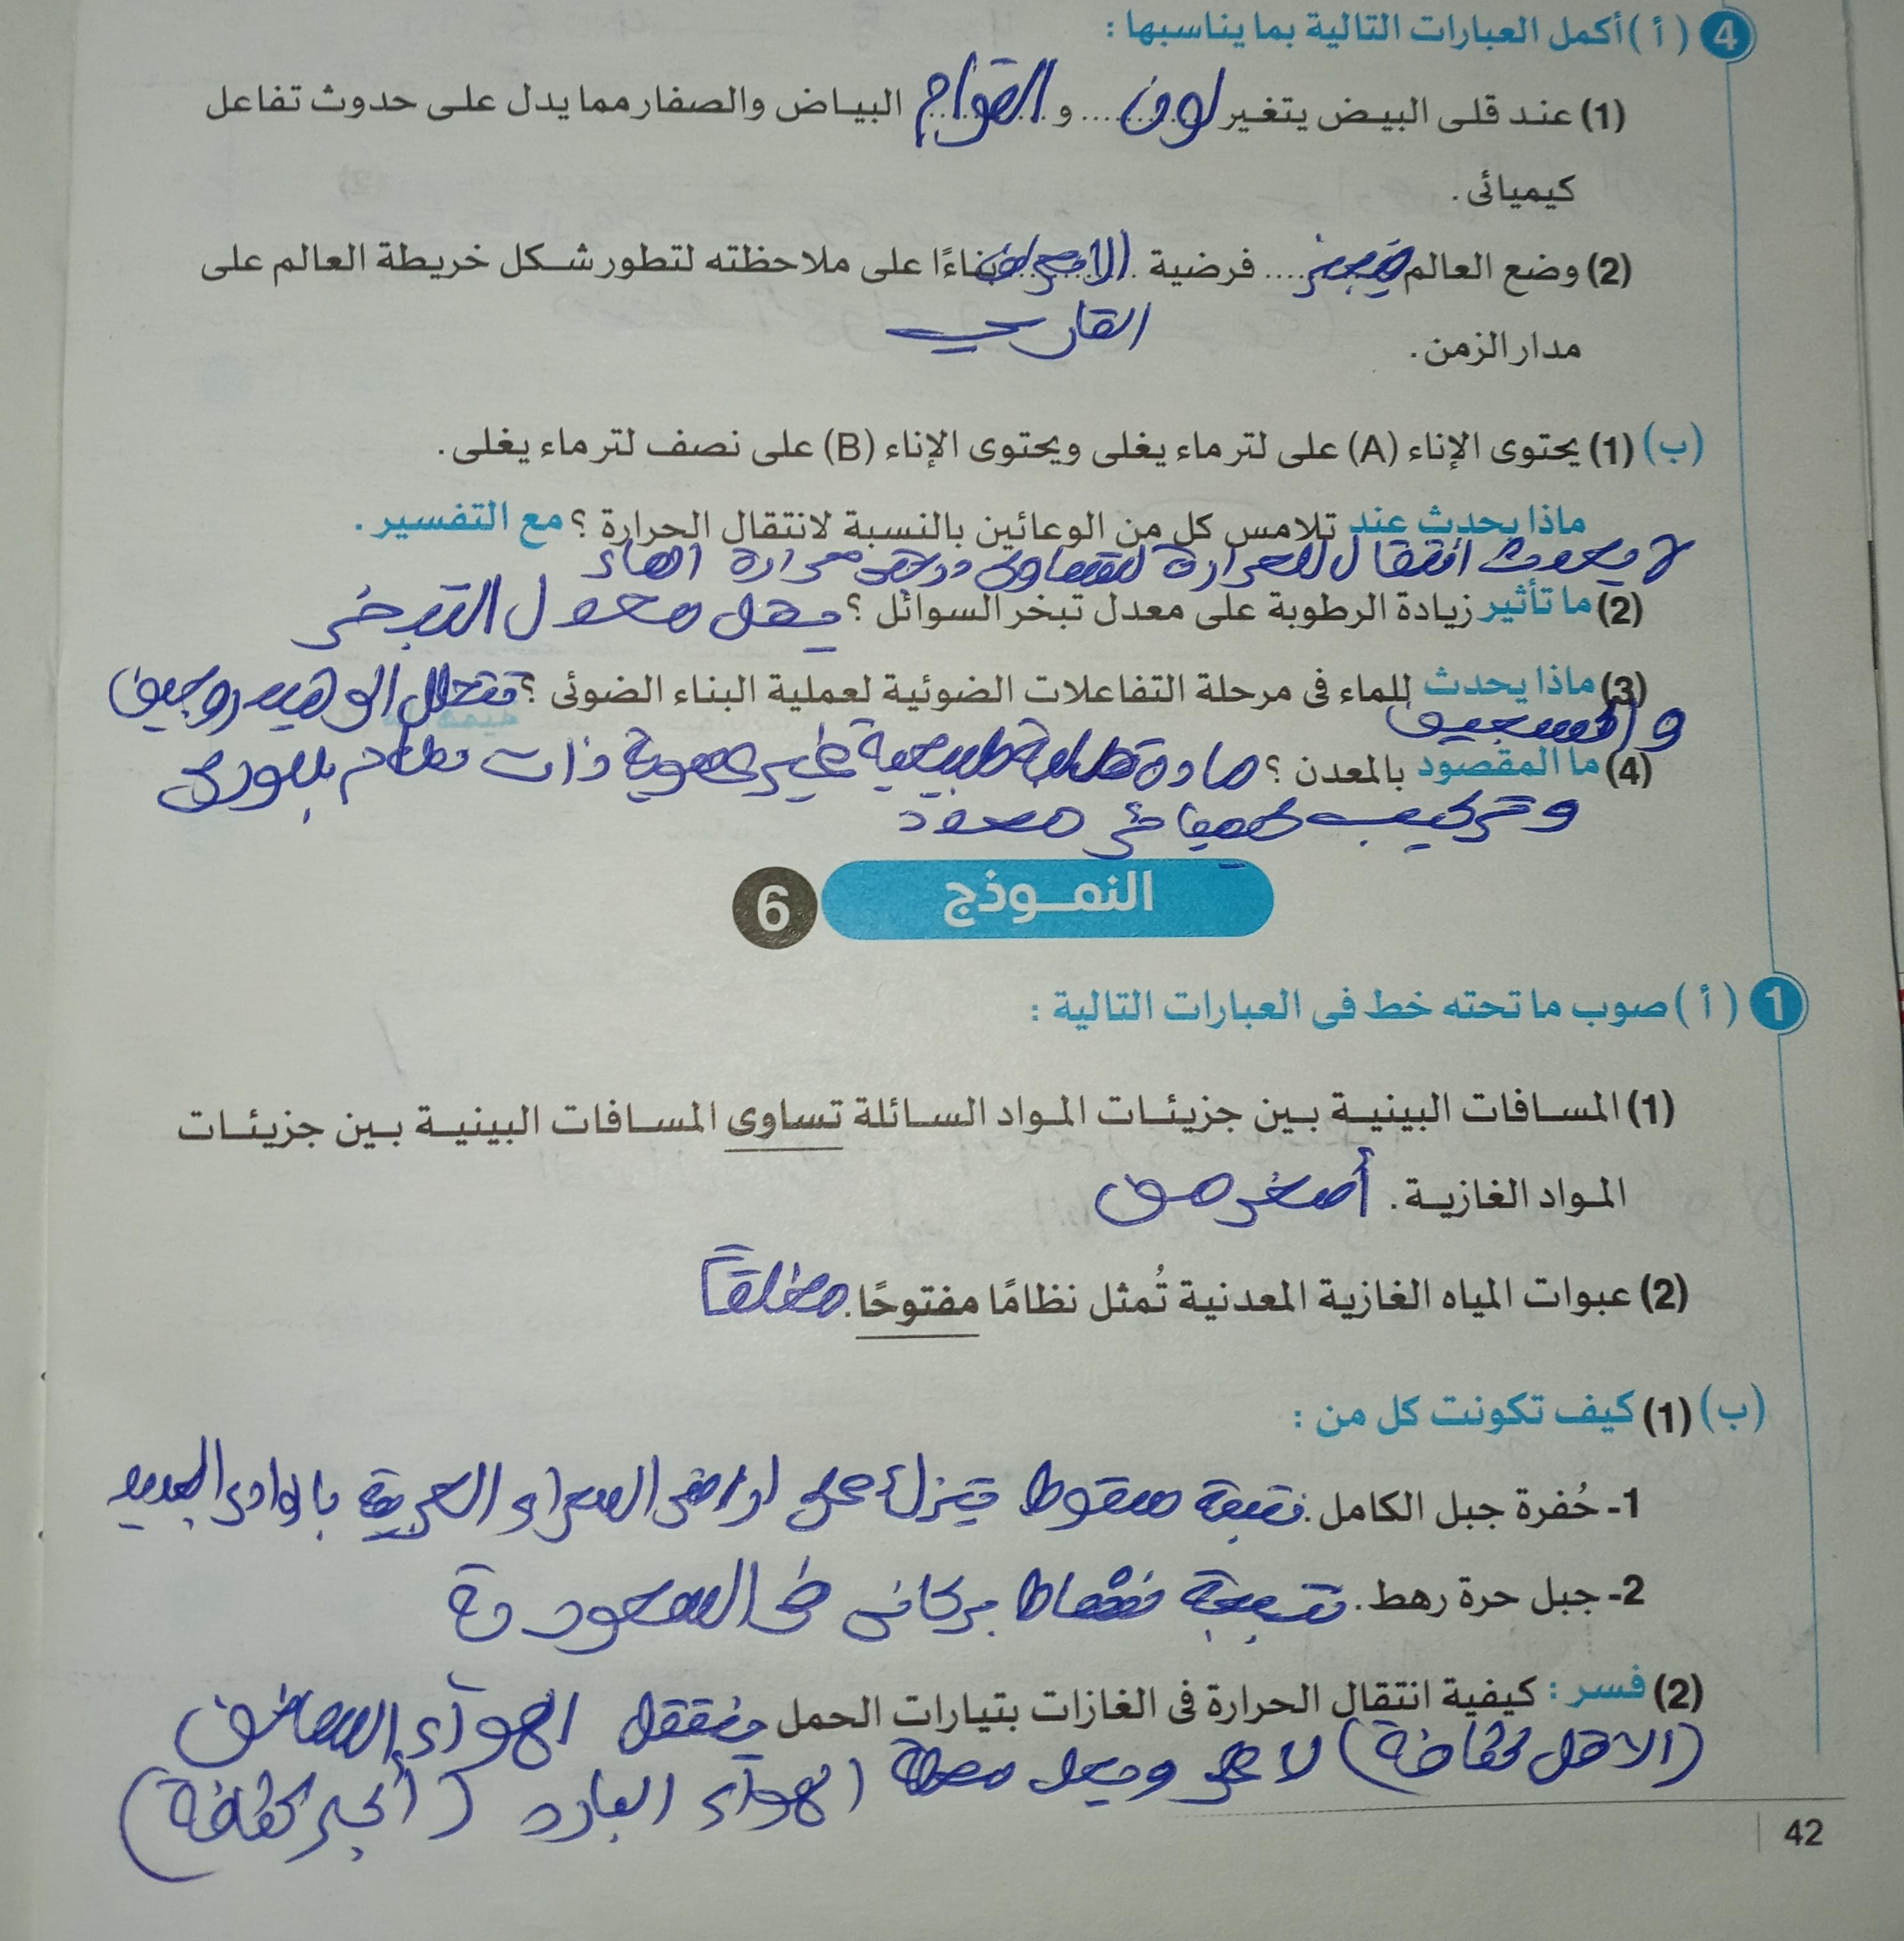 4 ( أ ) أكمل العبارات التالية بما يناسبها :
(1) عند قلى البيض يتغير لون .... و القوام البياض والصفار مما يدل على حدوث تفاعل
كيميائى .
(2) وضع العالم فيجنر .... فرضية الانجراف بناءًا على ملاحظته لتطور شكل خريطة العالم على
القارى
مدار الزمن .
(ب) (1) يحتوى الإناء (A) على لتر ماء يغلى ويحتوى الإناء (B) على نصف لتر ماء يغلى .
ماذا يحدث عند تلامس كل من الوعائين بالنسبة لانتقال الحرارة ؟ مع التفسير .
لا يحدث انتقال للحرارة لتساوى درجة حرارة الماء
(2) ما تأثير زيادة الرطوبة على معدل تبخر السوائل ؟ يقل معدل التبخر
(3) ماذا يحدث للماء فى مرحلة التفاعلات الضوئية لعملية البناء الضوئى ؟ تتحلل الى هيدروجين
و اكسجين
(4) ما المقصود بالمعدن ؟ مادة صلبة طبيعية غير عضوية ذات نظام بلورى
وتركيب كيميائى محدد
النموذج 6
1 ( أ ) صوب ما تحته خط فى العبارات التالية :
(1) المسافات البينية بين جزيئات المواد السائلة تساوى المسافات البينية بين جزيئات
المواد الغازية . أصغر من
(2) عبوات المياه الغازية المعدنية تُمثل نظامًا مفتوحًا . مغلقاً
(ب) (1) كيف تكونت كل من :
1- حُفرة جبل الكامل . نتيجة سقوط نيزك على اراضى الصحراء الغربية بالوادى الجديد
2- جبل حرة رهط . نتيجة نشاط بركانى فى السعودية
(2) فسر : كيفية انتقال الحرارة فى الغازات بتيارات الحمل ينتقل الهواء الساخن
(الاقل كثافة) لاعلى ويحل محله الهواء البارد (أكبر كثافة)
42